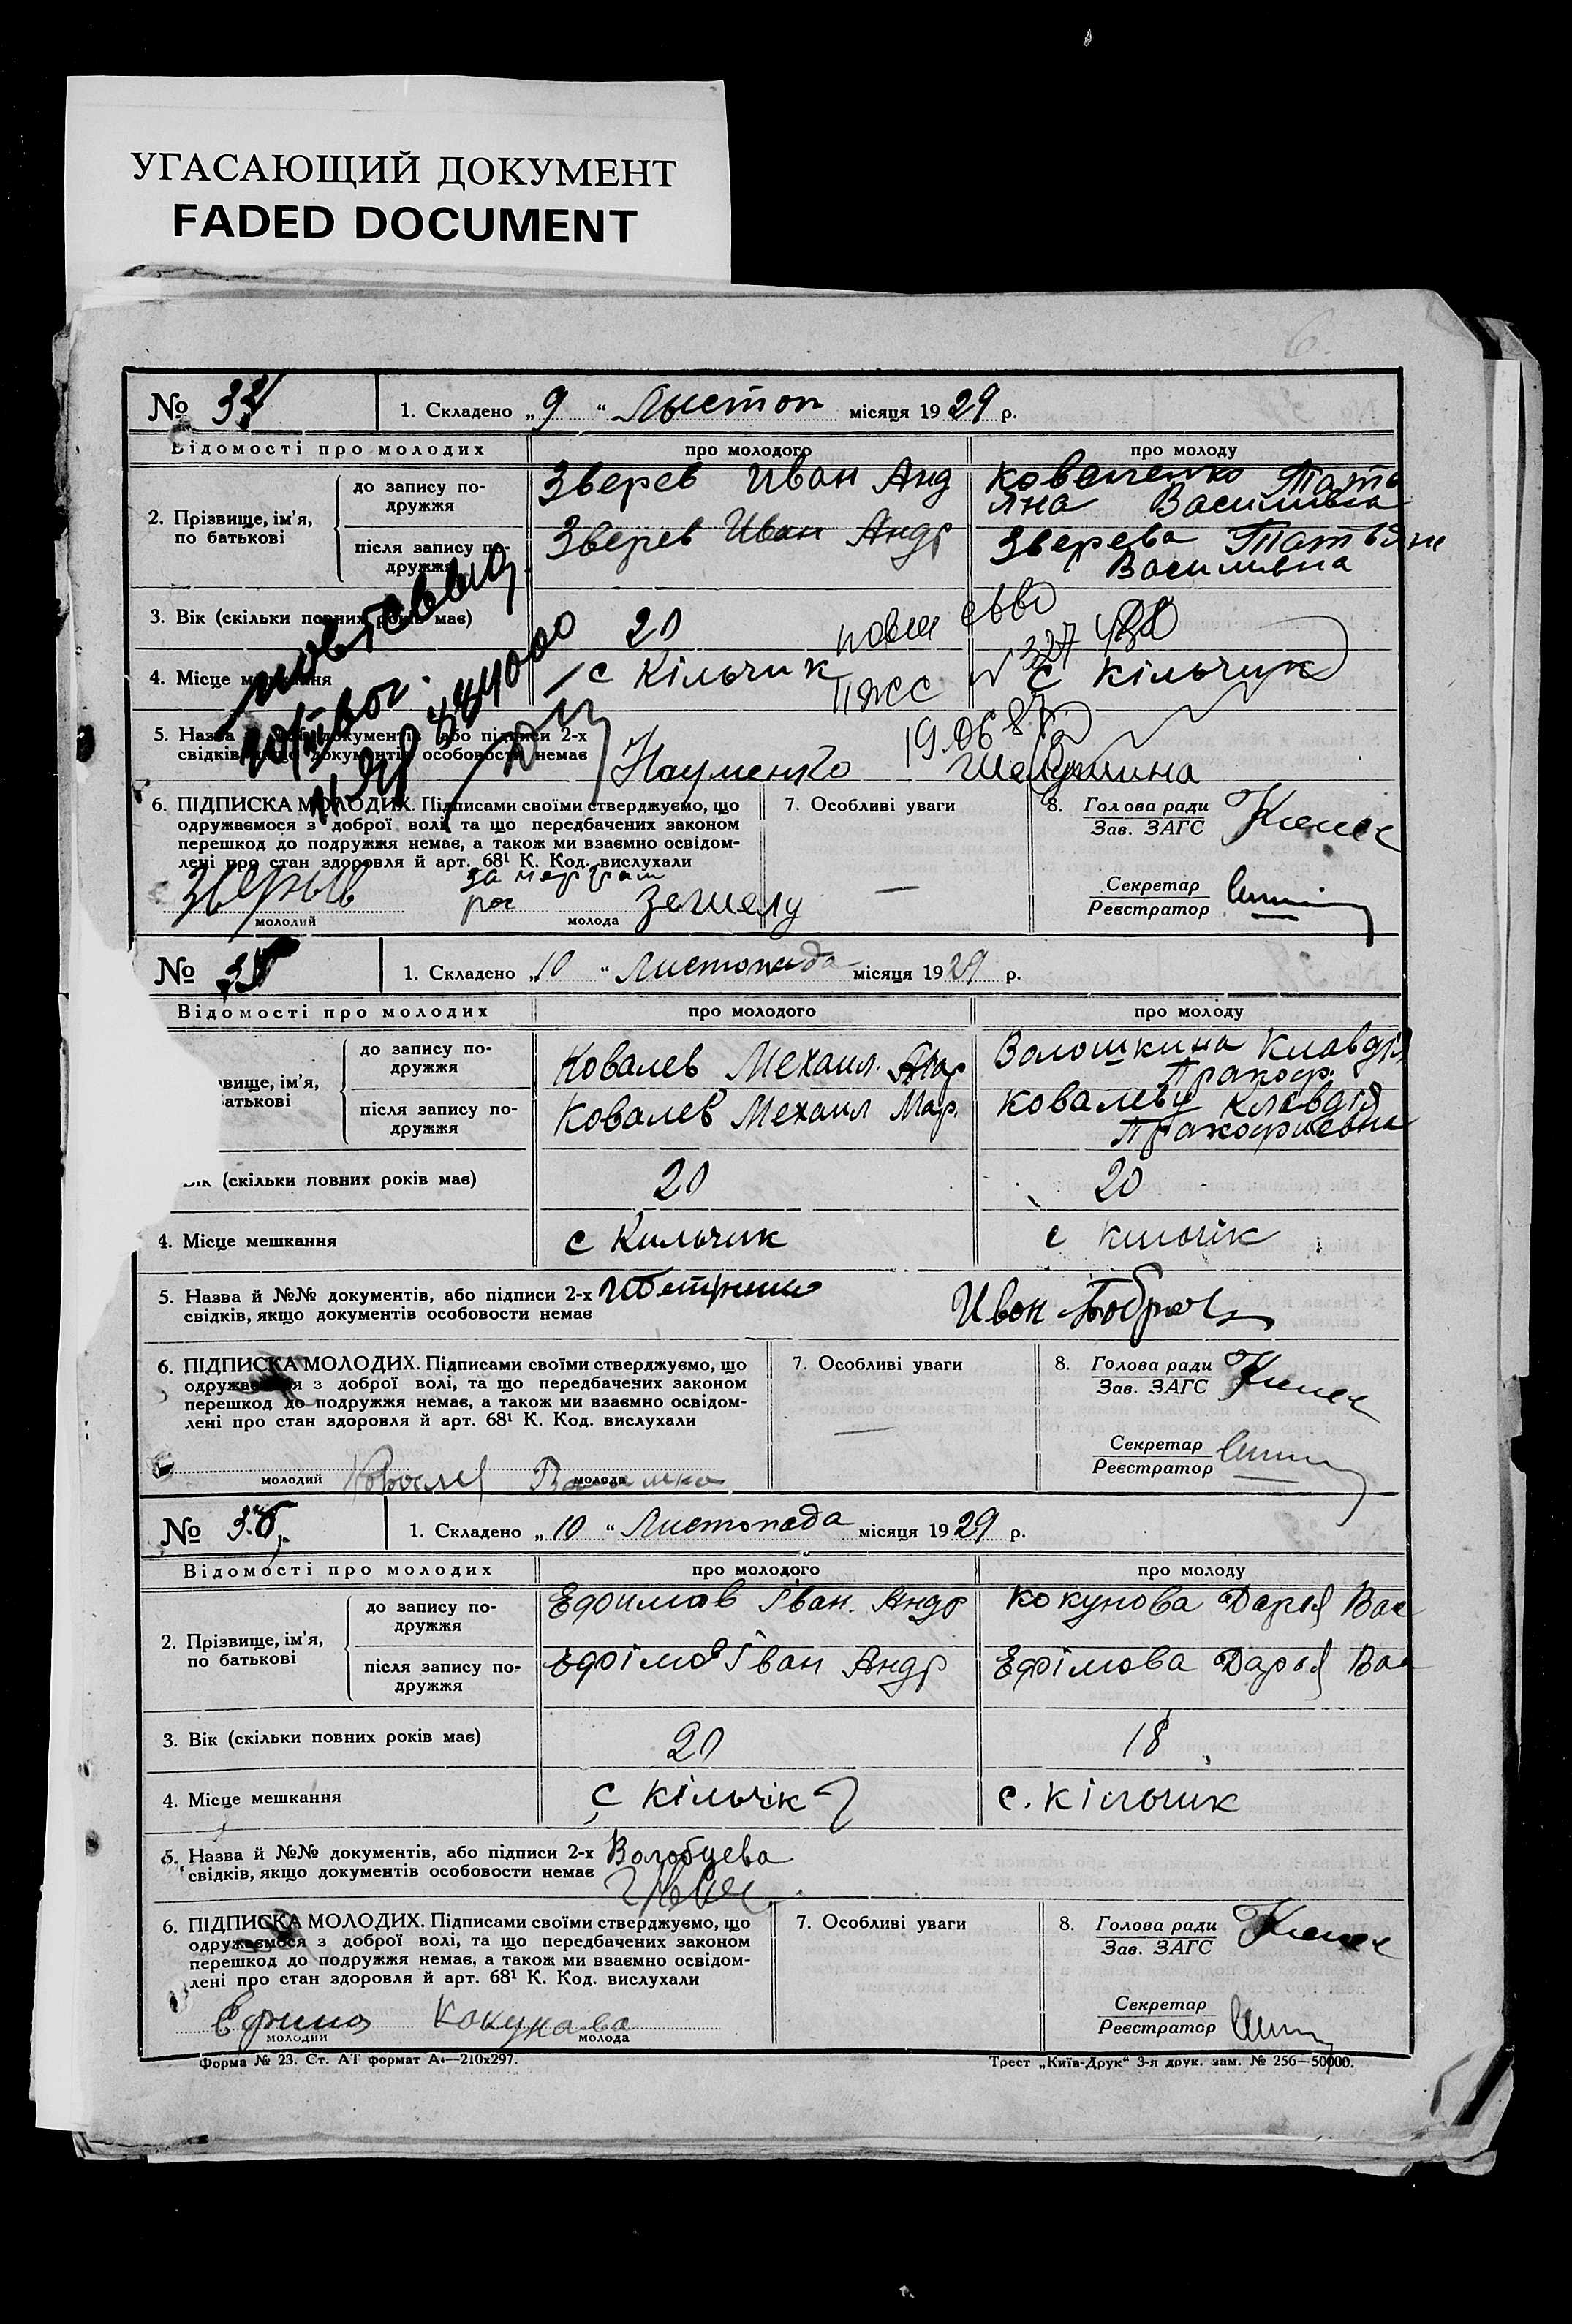 УГАСАЮЩИЙ ДОКУМЕНТ
FADED DOCUMENT
№ 34
1. Складено „9“ Листоп місяця 1929 р.
Відомості про молодих
про молодого
про молоду
2. Прізвище, ім'я, по батькові
до запису по-
дружжя
Зверев Иван Анд
Коваленко Тать
яна Васильвна
після запису по-
дружжя
Зверев Иван Андр
Зверева Татьяна
Васильвна
3. Вік (скільки повних років має)
20
4. Місце мешкання
с Кільчик
с Кільчик
повт
№ 327
19.06.87
5. Назва й №№ документів, або підписи 2-х
свідків, якщо документів особовости немає
Науменко
6. ПІДПИСКА МОЛОДИХ. Підписами своїми стверджуємо, що
одружаємося з доброї волі, та що передбачених законом
перешкод до подружжя немає, а також ми взаємно освідом-
лені про стан здоров'я й арт. 68¹ К. Код. вислухали
молодий
молода
7. Особливі уваги
—
8. Голова ради
Зав. ЗАГС
Секретар
Реєстратор
№ 35
1. Складено „10“ Листопада місяця 1929 р.
Відомості про молодих
про молодого
про молоду
вище, ім'я,
батькові
до запису по-
дружжя
Ковалев Мехаил. Мар
Волошкина Клавдія
Пракоф.
після запису по-
дружжя
Ковалев Мехаил Мар.
Ковалева Клавдія
Пракофиевна
Вік (скільки повних років має)
20
20
4. Місце мешкання
с Кильчик
с Кильчік
5. Назва й №№ документів, або підписи 2-х
свідків, якщо документів особовости немає
Ивон
6. ПІДПИСКА МОЛОДИХ. Підписами своїми стверджуємо, що
одружаємося з доброї волі, та що передбачених законом
перешкод до подружжя немає, а також ми взаємно освідом-
лені про стан здоров'я й арт. 68¹ К. Код. вислухали
молодий
Ковалев
молода
7. Особливі уваги
—
8. Голова ради
Зав. ЗАГС
Секретар
Реєстратор
№ 36
1. Складено „10“ Листопада місяця 1929 р.
Відомості про молодих
про молодого
про молоду
2. Прізвище, ім'я,
по батькові
до запису по-
дружжя
Ефимов Іван. Андр
Кокунова Дарья Вас
після запису по-
дружжя
Ефімов Іван Андр
Ефімова Дарья Вас
3. Вік (скільки повних років має)
20
18
4. Місце мешкання
с Кільчік
с. Кільчик
5. Назва й №№ документів, або підписи 2-х
свідків, якщо документів особовости немає
Волобуева
6. ПІДПИСКА МОЛОДИХ. Підписами своїми стверджуємо, що
одружаємося з доброї волі, та що передбачених законом
перешкод до подружжя немає, а також ми взаємно освідом-
лені про стан здоров'я й арт. 68¹ К. Код. вислухали
Ефимов
Кокунова
молодий
молода
7. Особливі уваги
8. Голова ради
Зав. ЗАГС
Секретар
Реєстратор
Форма № 23. Ст. АІ формат А₄—210x297.
Трест „Київ-Друк“ 3-я друк. зам. № 256—50000.